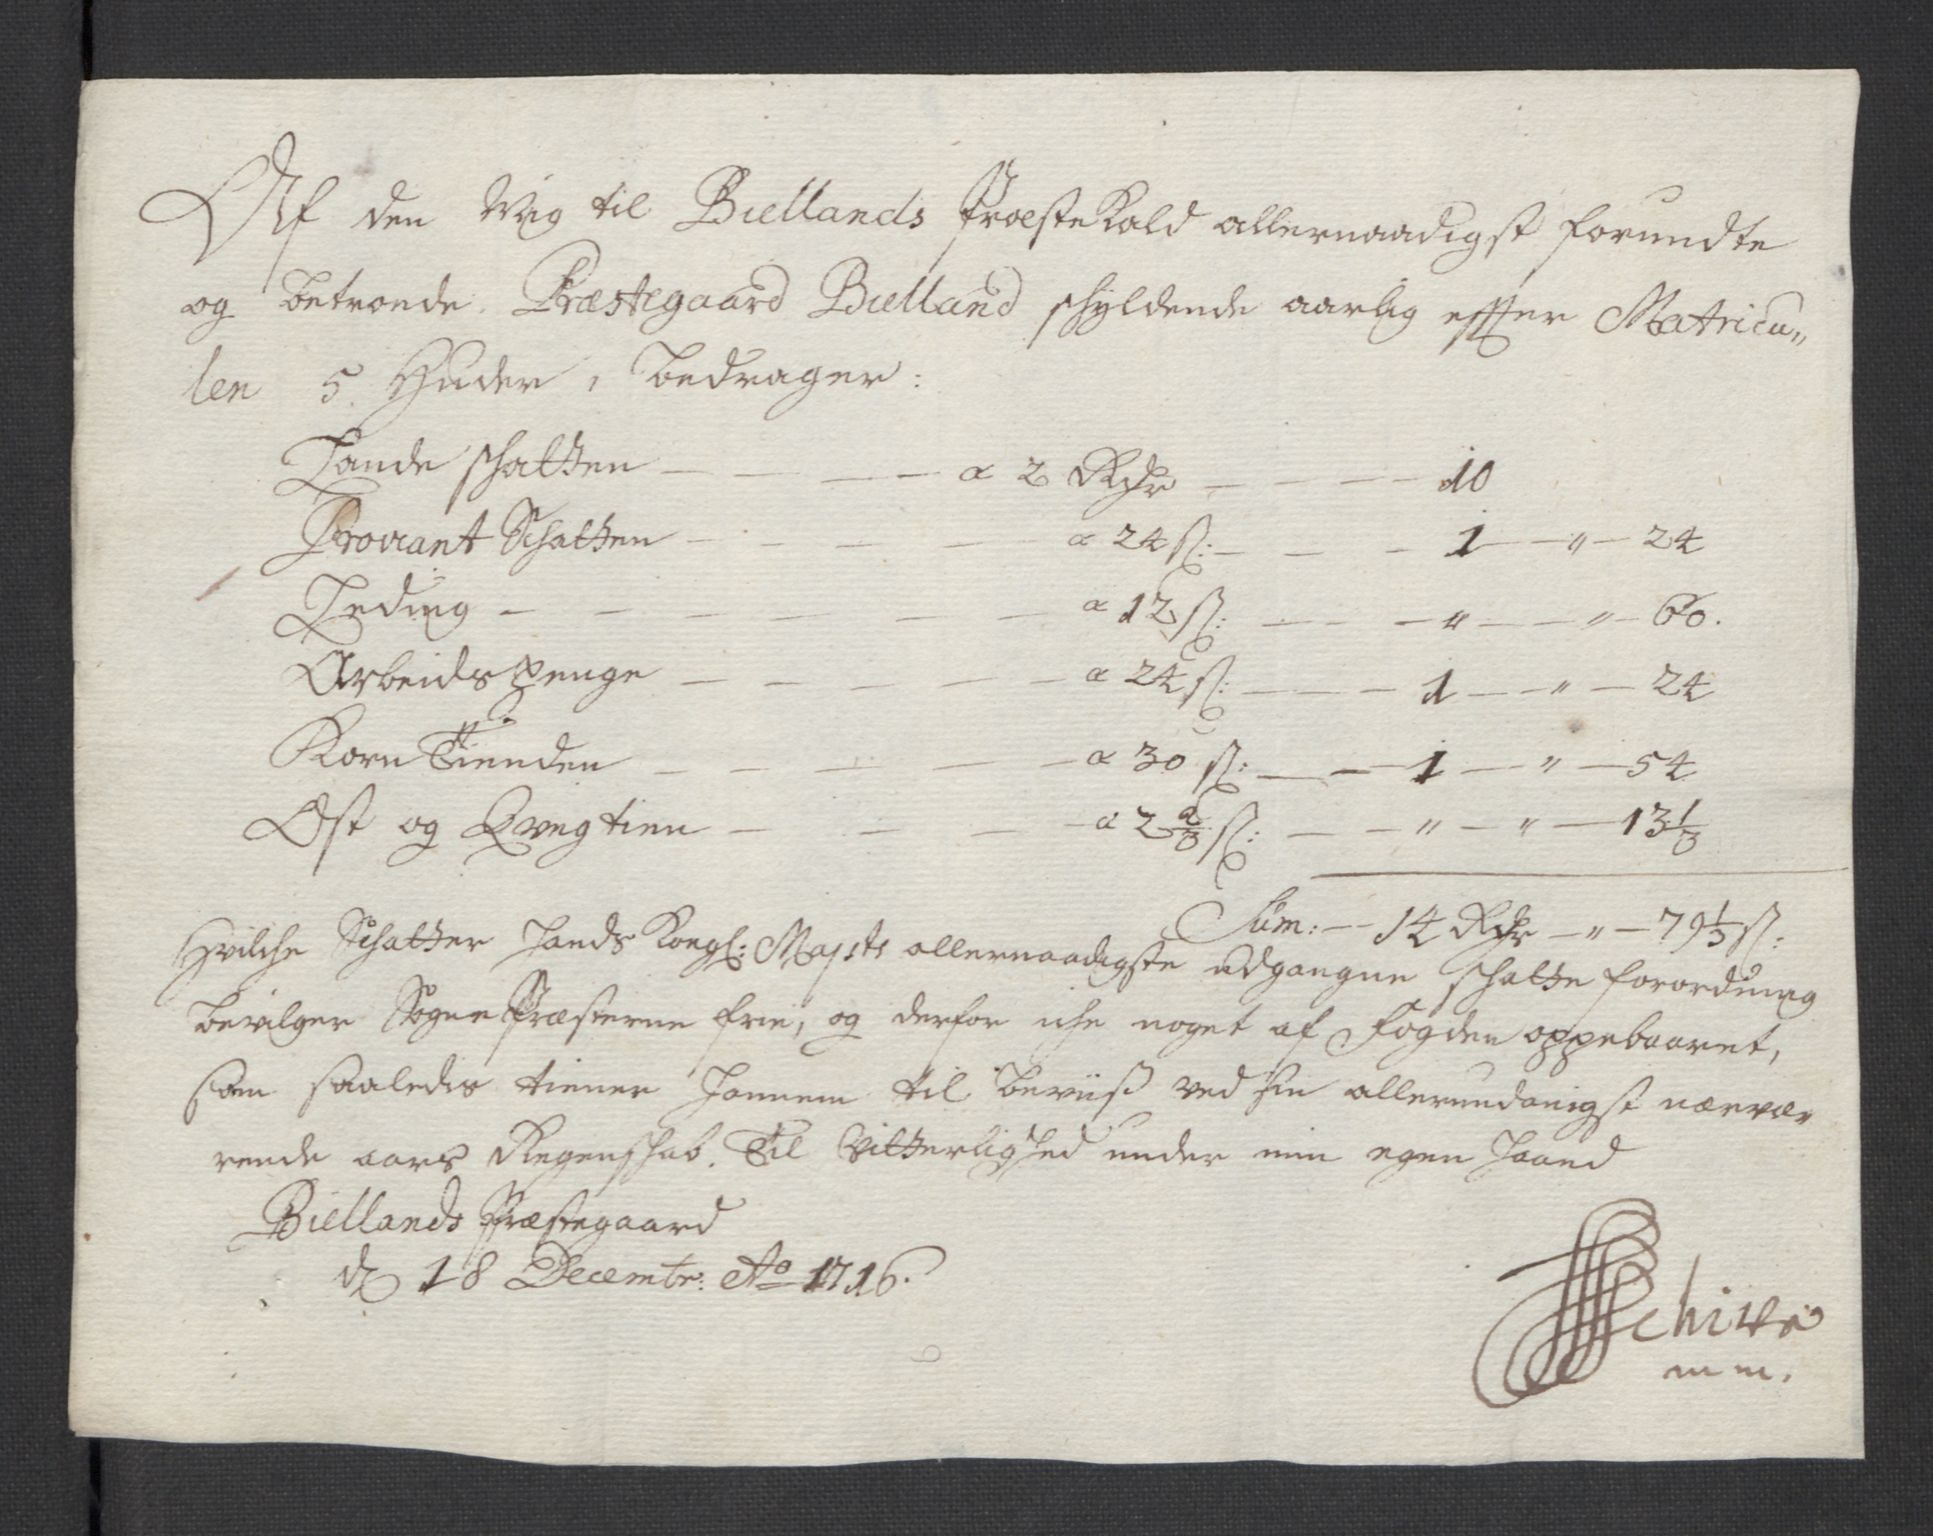 Af den Mig til Biellands Præstekald allernaadigst forundte
og betroede Præstegaard Bielland schyldende aarlig effter Matricu„
len 5 Huder, bedrager:
Lande schatten — — — — a 2 Rdr — — — 10
Proviant Schatten — — — — a 24 ß: — — — 1 — „ — 24
Leding — — — — — — a 12 ß: — — — „ — „ — 60.
Arbeids penge — — — — — a 24 ß: — — — 1 — „ — 24
Korn Tienden — — — — — a 30 ß: — — — 1 — „ — 54
Ost og Qvegtien — — — — a 2 2/3 ß: — — „ — „ — 13 1/3
Sum: — 14 Rdr — „ — 79 1/3 ß:
Hvilche Schatter hands Kongl: Mayts allernaadigste udgangne schatte forordning
bevilger Sogne Præsterne frie, og derfor iche noget af Fogden oppebaaret,
som saaledis tiener hannem til beviiß ved sin allerunderdanigst nærvæ„
rende aars Regenschab. Til Vitterlighed under min egen haand
Biellands Præstegaard
d 18 Decembr: Ao 1716.
Schive
mm.